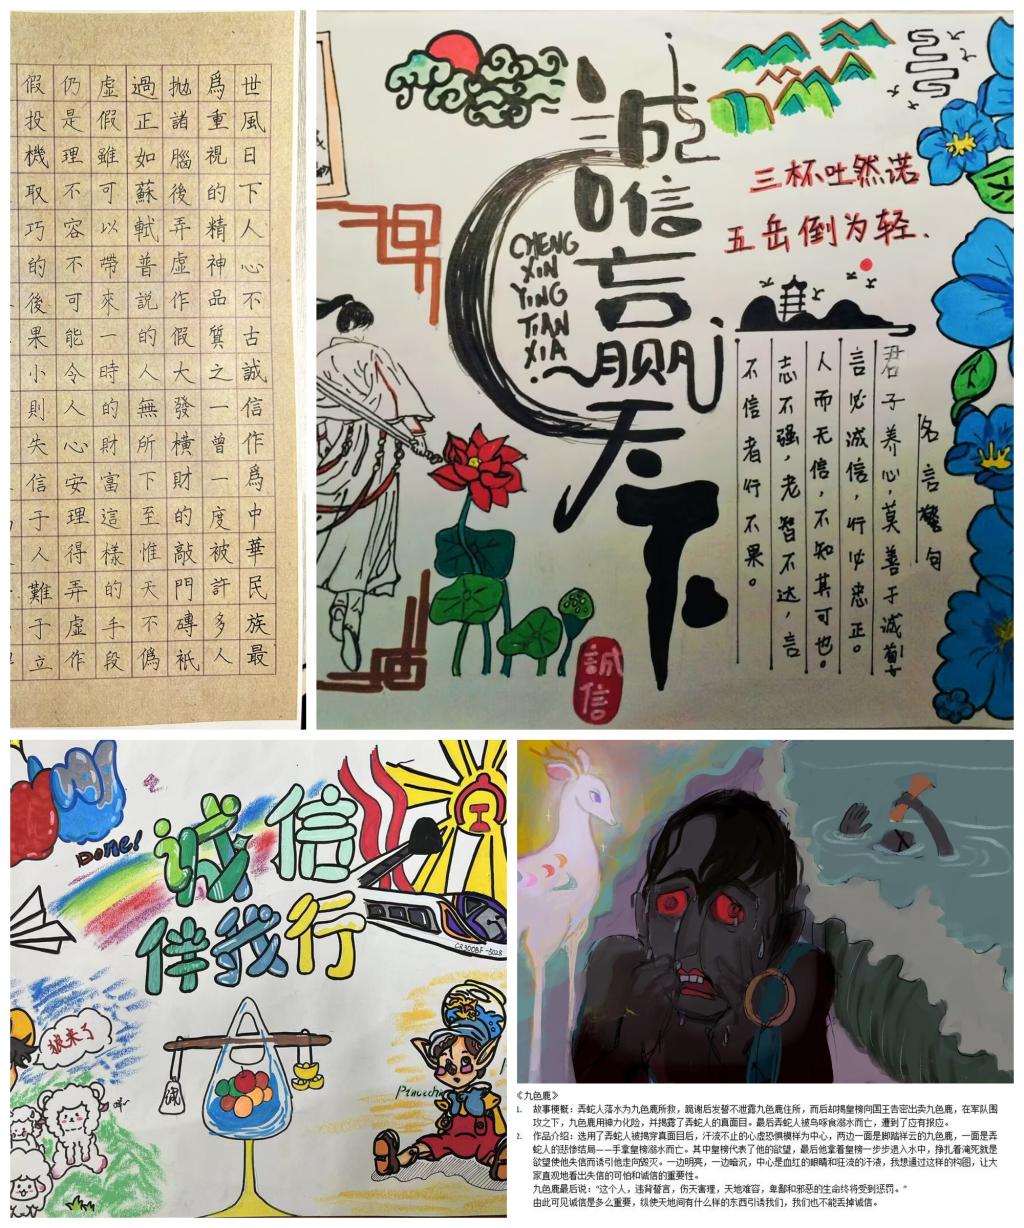 世風日下人心不古誠信作爲中華民族最
爲重視的精神品質之一曾一度被許多人
拋諸腦後弄虛作假大發橫財的敲門磚祇
過正如蘇軾普說的人無所下至惟天不僞
虛假雖可以帶來一時的財富這樣的手段
仍是理不容不可能令人心安理得弄虛作
假投機取巧的後果小則失信于人難于立
誠信赢天下
CHENG
XIN
YING
TIAN
XIA
三杯吐然诺
五岳倒为轻.
名言警句
君子养心,莫善于诚
言必诚信,行必忠正。
人而无信,不知其可也。
志不强,老智不达,言
不信者行不果。
誠信
Done!
诚信
伴我行
CR300BF-5028
狼来了
诚
《九色鹿》
1. 故事梗概：弄蛇人落水为九色鹿所救，跪谢后发誓不泄露九色鹿住所，而后却揭皇榜向国王告密出卖九色鹿，在军队围
攻之下，九色鹿用神力化险，并揭露了弄蛇人的真面目。最后弄蛇人被鸟啄食溺水而亡，遭到了应有报应。
2. 作品介绍：选用了弄蛇人被揭穿真面目后，汗流不止的心虚恐惧模样为中心，两边一面是脚踏祥云的九色鹿，一面是弄
蛇人的悲惨结局——手拿皇榜溺水而亡。其中皇榜代表了他的欲望，最后他拿着皇榜一步步退入水中，挣扎着淹死就是
欲望使他失信而诱引他走向毁灭。一边明亮，一边暗沉，中心是血红的眼睛和狂凌的汗液，我想通过这样的构图，让大
家直观地看出失信的可怕和诚信的重要性。
九色鹿最后说：“这个人，违背誓言，伤天害理，天地难容，卑鄙和邪恶的生命终将受到惩罚。”
由此可见诚信是多么重要，纵使天地间有什么样的东西引诱我们，我们也不能丢掉诚信。